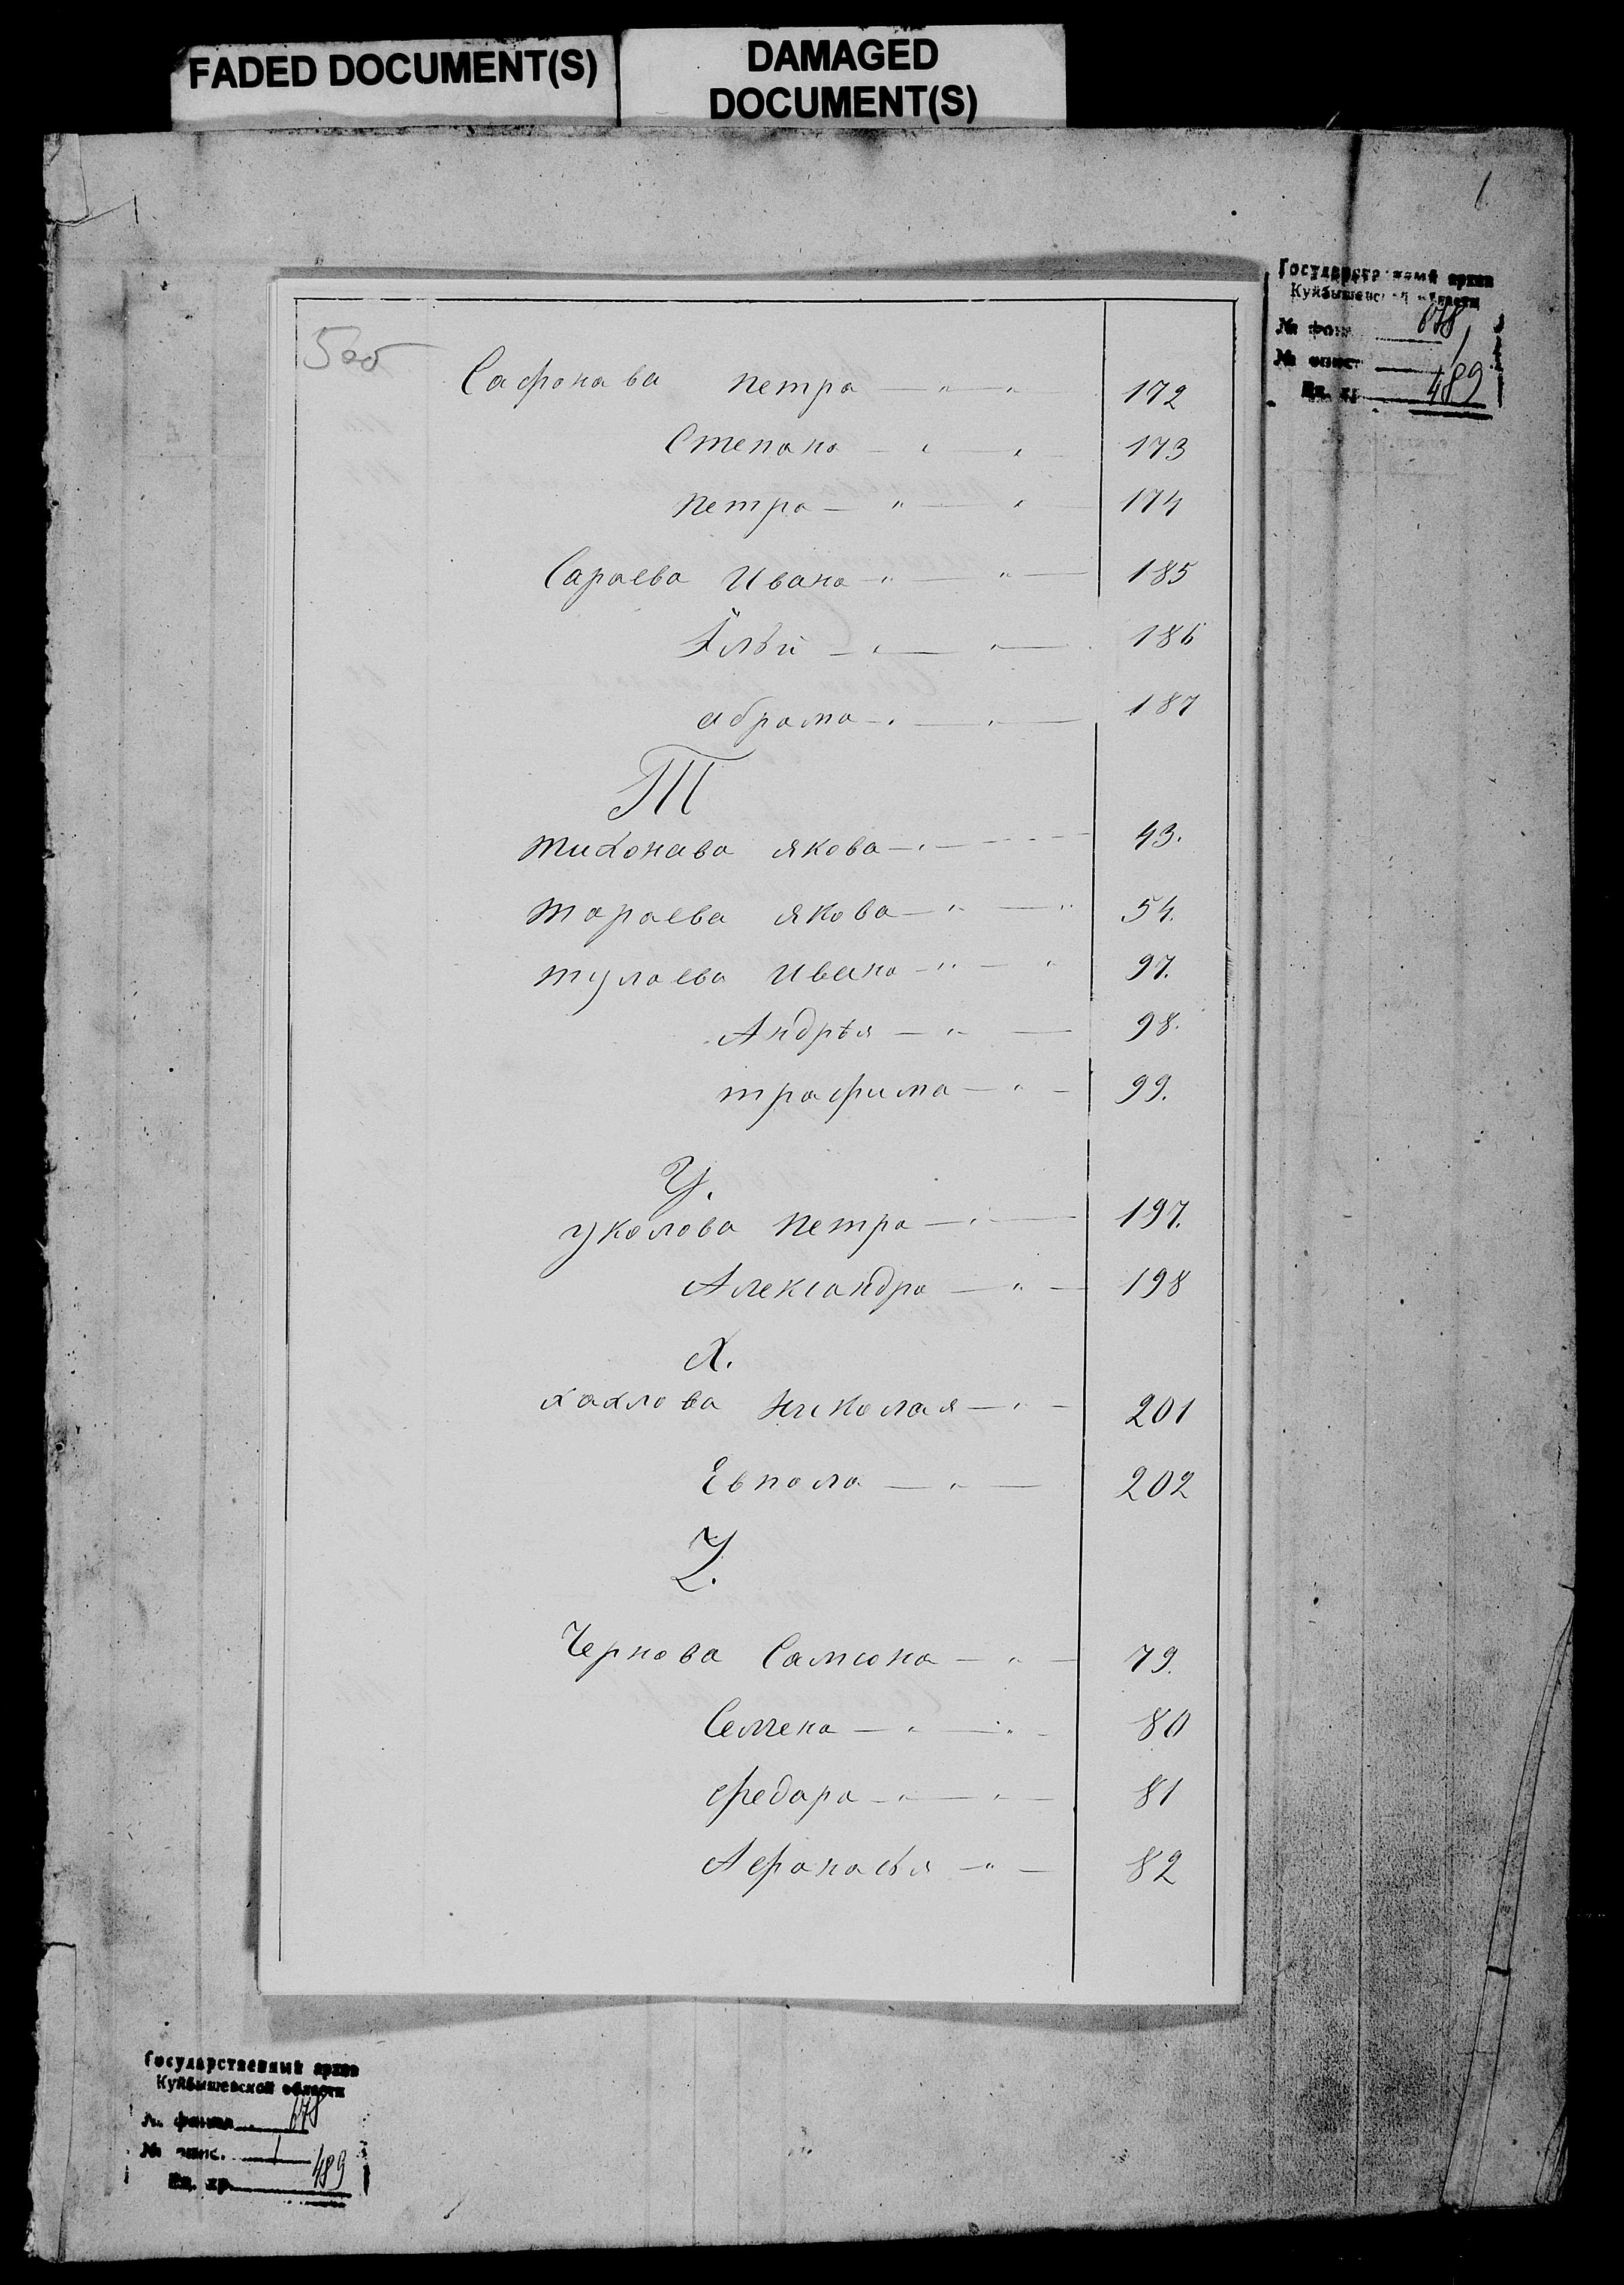 FADED DOCUMENT(S)
DAMAGED
DOCUMENT(S)
1
Государственный архив
Куйбышевской области
№ фон. 678
№ опис. 1
Ед. хр. 489
5об
Сафонава петра — " — " 172
Степана — " — " — 173
петра — " — " — 174
Сараева Ивана — " — " — 185
Ильи — " — " — 186
абрама — " — " — 187
Т
тихонава якова — " — 43.
тараева якова — " — " 54.
тулаева Ивана — " — " 97.
Андрѣя — " — 98.
трафима — " — 99.
У.
уколова петра — " — 197.
Александра — " — 198
Х.
хахлова николая — " — 201
Евпола — " — 202
Ч.
Чернова Самсона — " — 79.
Семена — " — " — 80
федара — " — " — 81
Афонасья — " — 82
Государственный архив
Куйбышевской области
№ фонда 678
№ опис. 1
Ед. хр. 489